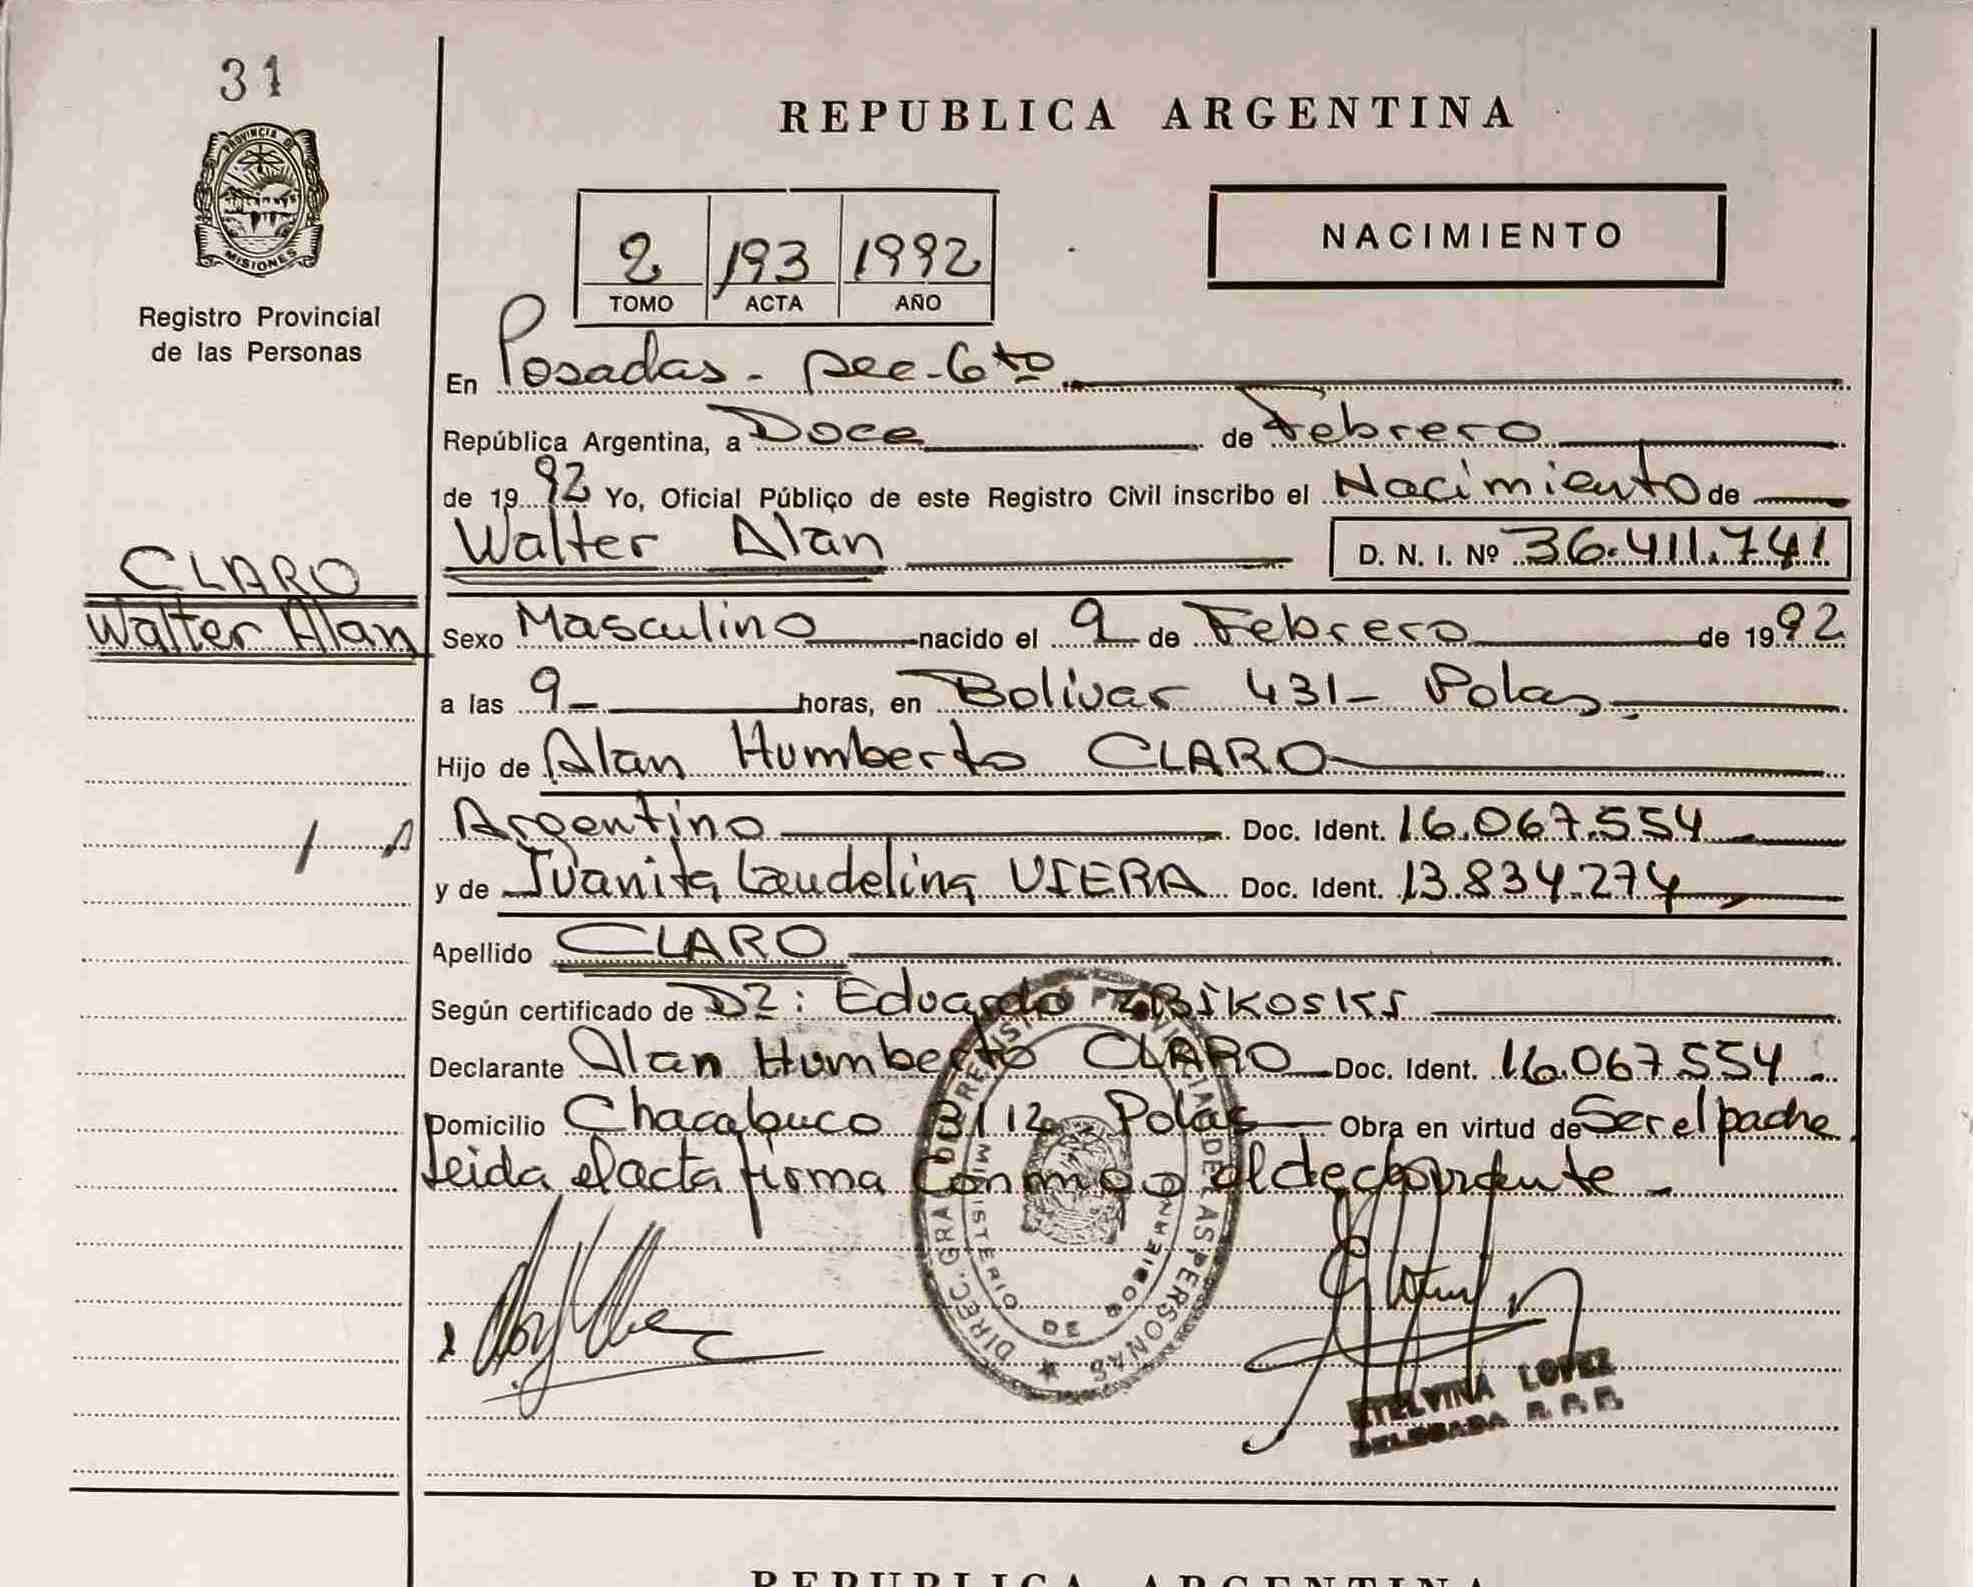 31
PROVINCIA DE
MISIONES
Registro Provincial
de las Personas
REPUBLICA ARGENTINA
NACIMIENTO
2 193 1992
TOMO ACTA AÑO
En Posadas - secc - 6to
República Argentina, a Doce de Febrero
de 1992 Yo, Oficial Público de este Registro Civil inscribo el Nacimiento de
Walter Alan D. N. I. Nº 36.411.741
CLARO
Walter Alan
Sexo Masculino nacido el 9 de Febrero de 1992
a las 9 horas, en Bolivar 431 - Pdas
Hijo de Alan Humberto CLARO
Argentino Doc. Ident. 16.067.554
y de Juanita Laudelina VIERA Doc. Ident. 13.834.274
Apellido CLARO
Según certificado de Dr: Eduardo ZBIKOSKI
Declarante Alan Humberto CLARO Doc. Ident. 16.067.554
Domicilio Chacabuco Pdas Obra en virtud de Ser el padre
leida el acta firma Conmigo el declarante
DIREC. GRAL DE REGISTRO PROVINCIAL DE LAS PERSONAS
MINISTERIO DE GOBIERNO
ETELVINA LOPEZ
DELEGADA R. P. P.
REPUBLICA ARGENTINA